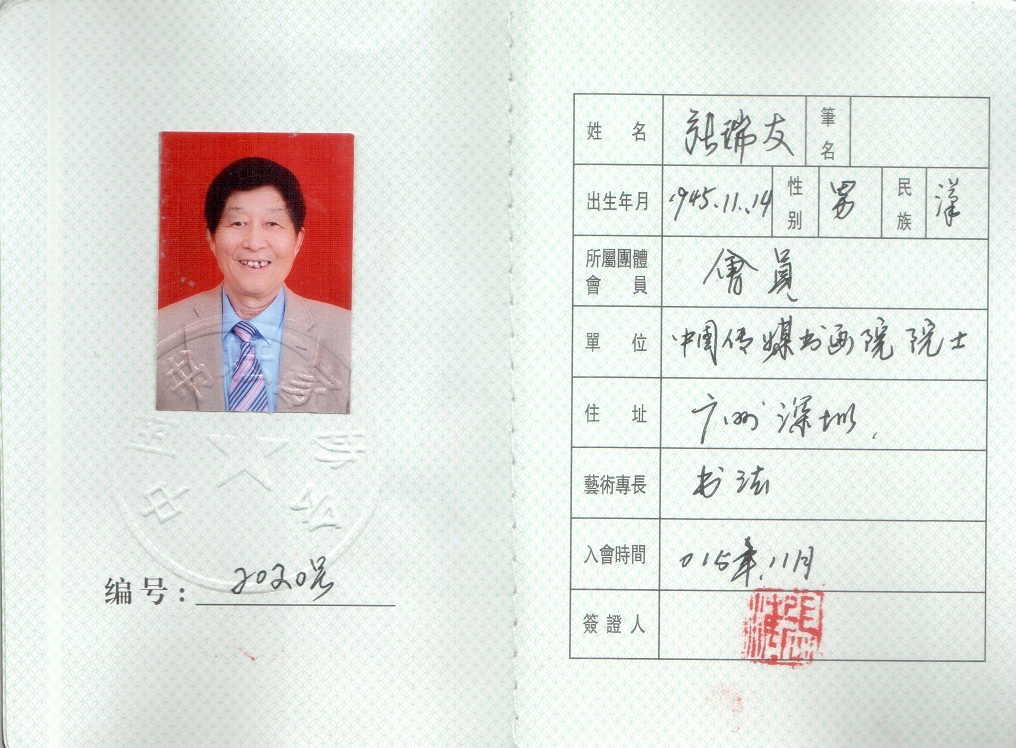 编号： 2020号
姓 名 张瑞友 筆名
出生年月 1945.11.14 性别 男 民族 漢
所屬團體會員 會員
單 位 中國传媒书画院 院士
住 址 广州 深圳
藝術專長 书法
入會時間 015年.11月
簽 證 人